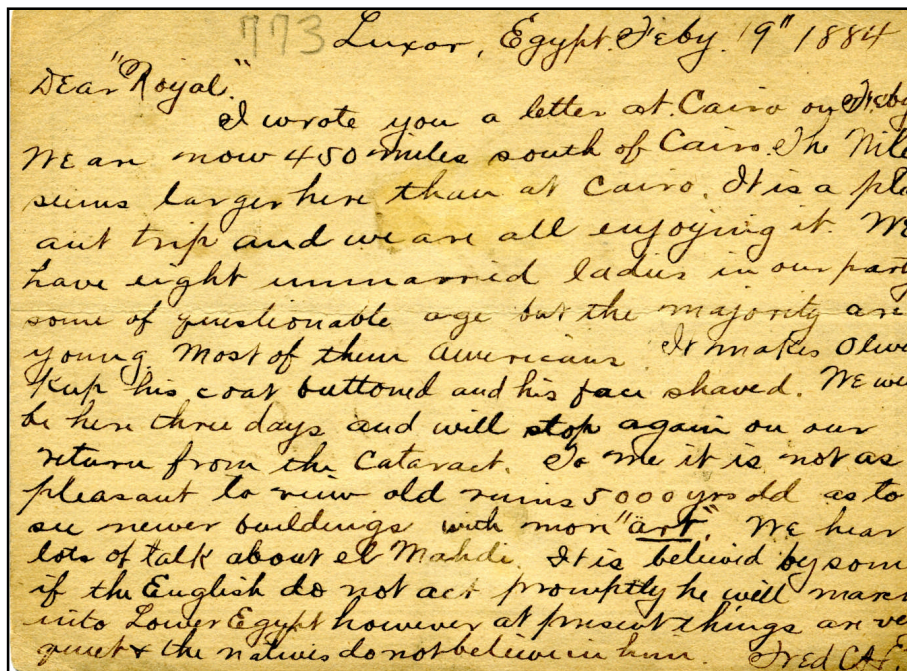 773 Luxor, Egypt. Feby. 19" 1884
Dear "Royal."
I wrote you a letter at Cairo on Feby
We are now 450 miles south of Cairo. The Nile
seems larger here than at Cairo. It is a plea
ant trip and we are all enjoying it. We
have eight unmarried ladies in our party
some of questionable age but the majority are
young. Most of them Americans. It makes Oliver
keep his coat buttoned and his face shaved. We will
be here three days and will stop again on our
return from the Cataract. To me it is not as
pleasant to view old ruins 5000 yrs old as to
see newer buildings with more "art". We hear
lots of talk about el Mahdi. It is believed by some
if the English do not act promptly he will march
into Lower Egypt however at present things are ve
quiet & the natives do not believe in him. Fred